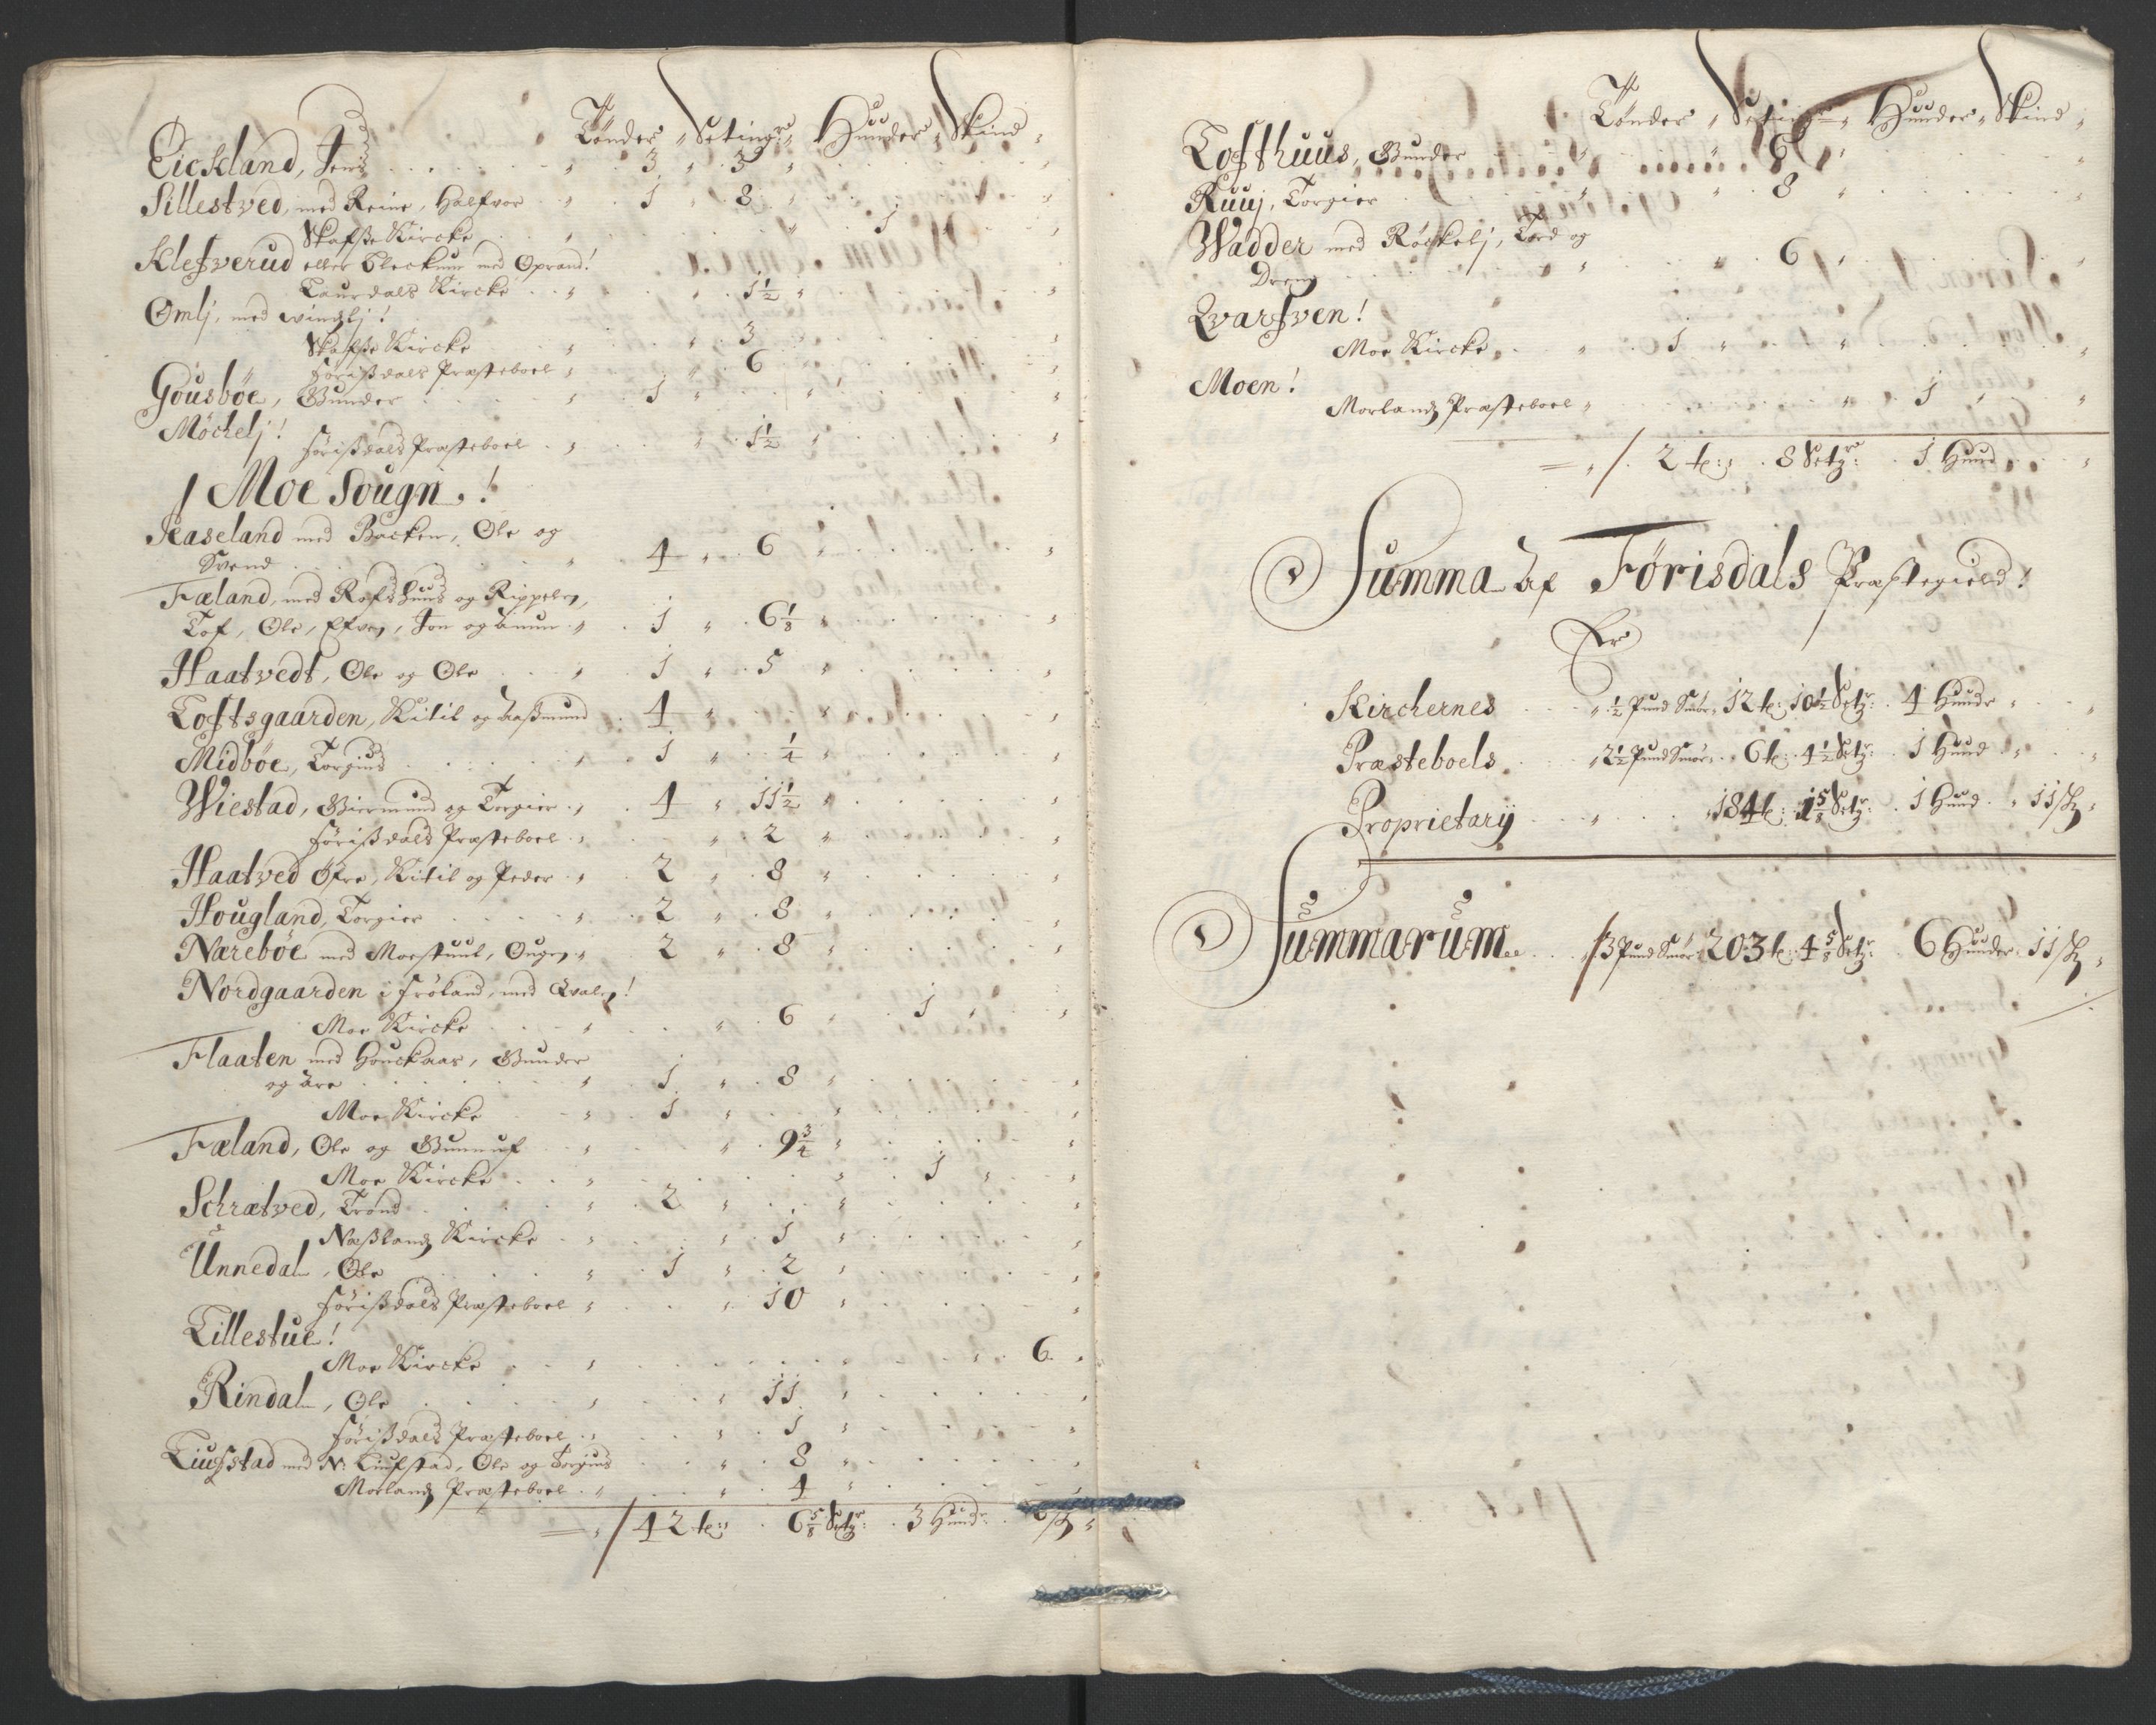 Tønder „ Setingr „ Hunder „ Skind „
Eickland, Jens . . . „ 3 „ 3 „
Sillestved, med Reine, Halfvor „ 1 „ 8 „
Skafße Kircke „ 1
Klefverud eller Kleckum med Oprand!
Laurdals Kircke „ „ 1½ „
Omlj, med Vinglj!
Skafße Kircke „ 3
Førißdals Præsteboel „ „ 6
Gousbøe, Gunder „ 1 „
Möchelj!
Førißdals Præsteboel „ „ 1½ „
/ Moe Sougn.!
Raseland med Backen, Ole og
Svend „ 4 „ 6 „
Fæland, med Rofshuus og Rippelen,
Tof, Ole, Efven, Jon og Amun „ 1 „ 6⅛ „
Haatvedt, Ole og Ole „ 1 „ 5 „
Toftsgaarden, Kitil og Aaßmund 4 „
Midbøe, Torgius „ 1 „ ¼ „
Wiestad, Giermund og Torgier „ 4 „ 11½ „
Førißdals Præsteboel „ „ 2 „
Haatved Øfre, Kitil og Peder „ 2 „ 8 „
Hougland, Torgier „ 2 „ 8 „
Nærebøe med Moestuul, Ougen „ 2 „ 8 „
Nordgaarden i Frøland, med Qvalen!
Moe Kircke „ „ 6 „ 1 „
Flaaten med Houckaas, Gunder
og Are „ 1 „ 8 „
Moe Kircke „ 1 „
Fæland, Ole og Gunnuf „ „ 9¾ „
Moe Kircke „ „ 1 „
Schrætved, Trond „ 2 „
Næßlandz Kircke „ „ 1 „
Unnedal, Ole „ 1 „ 2 „
Førißdals Præsteboel „ „ 10 „
Tillestue!
Moe Kircke „ „ 6 „
Rindal, Ole „ „ 11 „
Førißdals Præsteboel „ „ 1 „
Liufstad med N: Liufstad, Ole og Torgius „ 8 „
Morlandz Præsteboel „ „ 4 „
= „ / 42 tr: 6⅝ Setgr: 3 Hundr: 6 sk „
Tønder „ Setingr „ Hunder „ Skind „
Tofthuus, Gunder „ „ 6 „
Ruuj, Torgier „ „ 8 „
Wadder med Røckelj, Tord og
Dreng „ „ 6 „
Qvarfven!
Moe Kircke „ 1 „
Moen!
Morlandz Præsteboel „ „ 1 „
= „ /. 2 tr: 8 Setgr: 1 Hund „
Summa af Førisdals Præstegield!
Er
Kirchernes „ ½ Pund Smør „ 12 tr: 10½ Setgr: 4 Hundr „
Præsteboels „ 2½ Pund Smør „ 6 tr: 4½ Setgr: 1 Hund „
Proprietarij „ 184 tr: 1⅝ Setgr: 1 Hund „ 11 sk „
Summarum „ / 3 Pund Smør 203 tr: 4⅝ Setgr: 6 Hunder 11 sk „